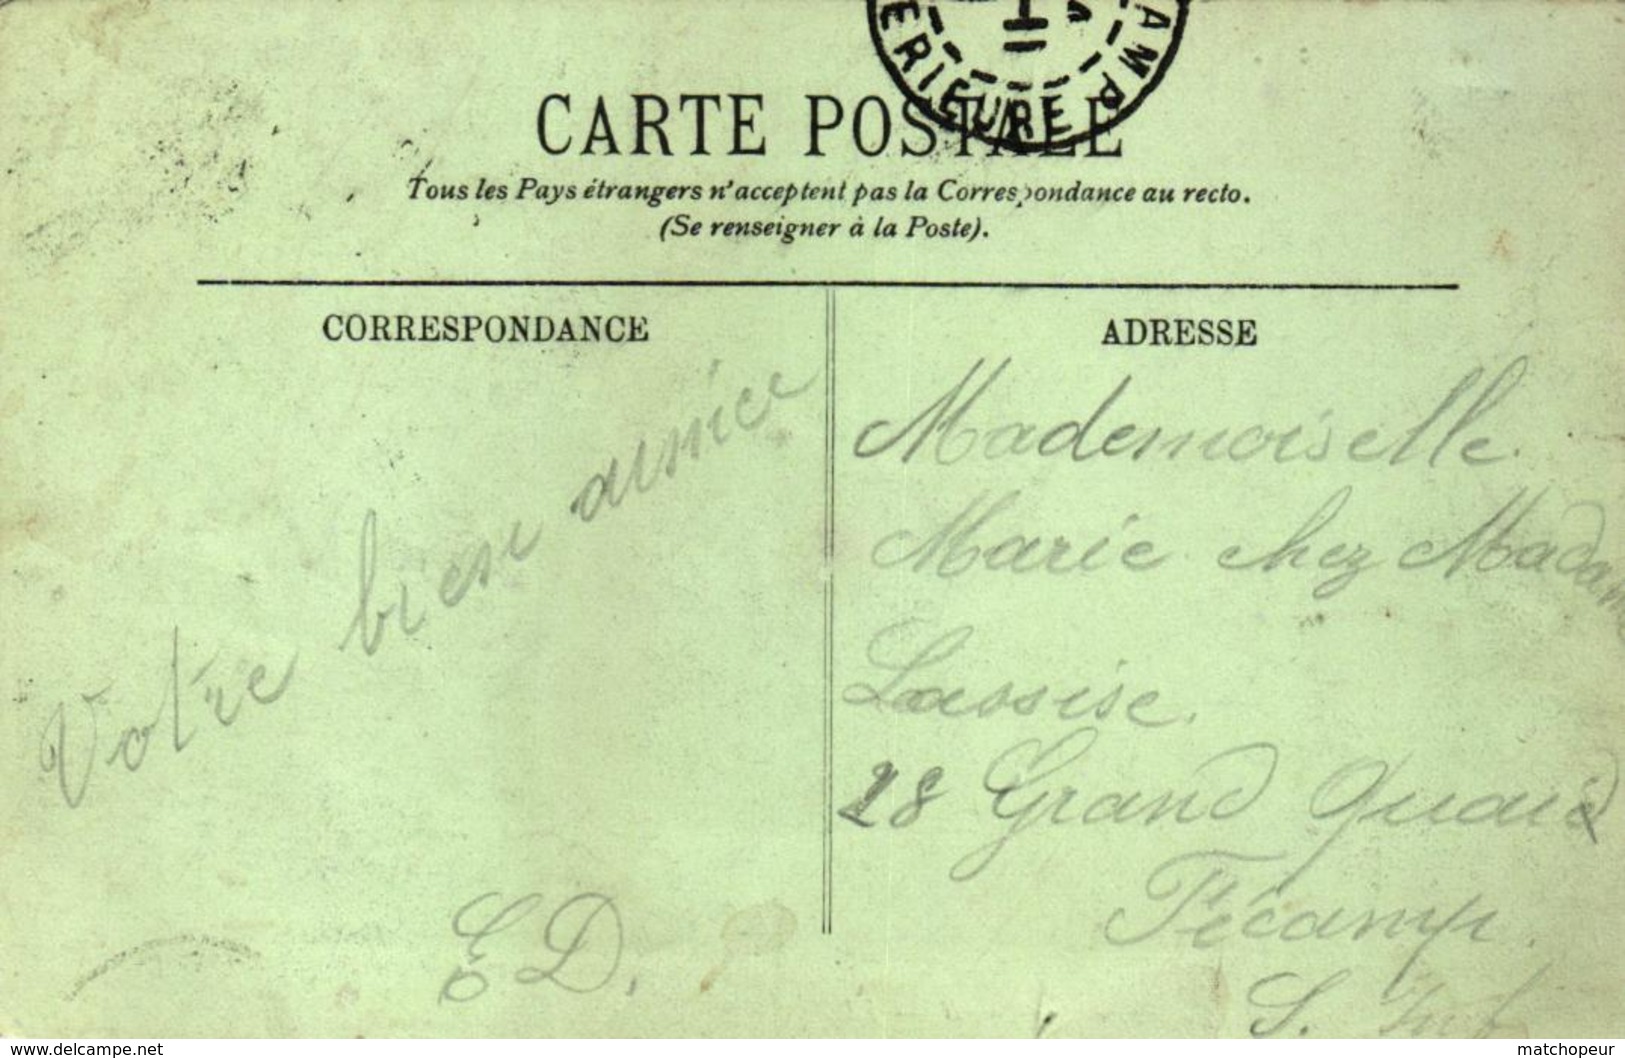 AMP
ERIEURE
CARTE POSTALE
Tous les Pays étrangers n'acceptent pas la Correspondance au recto.
(Se renseigner à la Poste).
CORRESPONDANCE
Votre bien aimée
E D.
ADRESSE
Mademoiselle
Marie chez Madame
Lassise.
28 Grand Quai
Fécamp.
S. Inf
www.delcampe.net
matchopeur